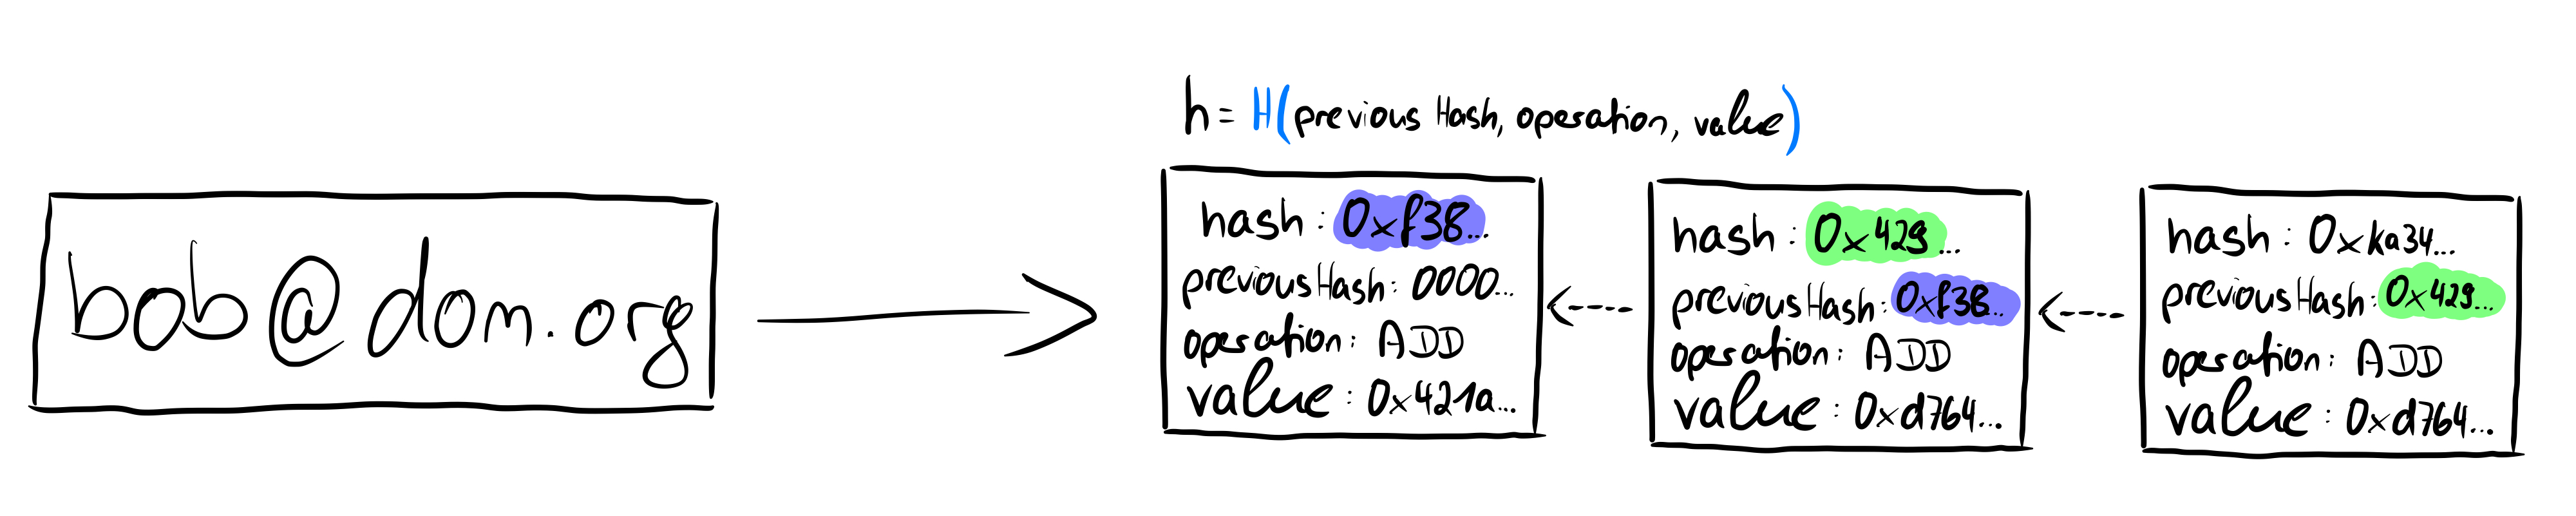 h = H(previous Hash, operation, value)
bob@dom.org
hash: 0xf38...
previousHash: 0000...
operation: ADD
value: 0x421a...
hash: 0x429...
previousHash: 0xf38...
operation: ADD
value: 0xd764...
hash: 0xka34...
previousHash: 0x429...
operation: ADD
value: 0xd764...